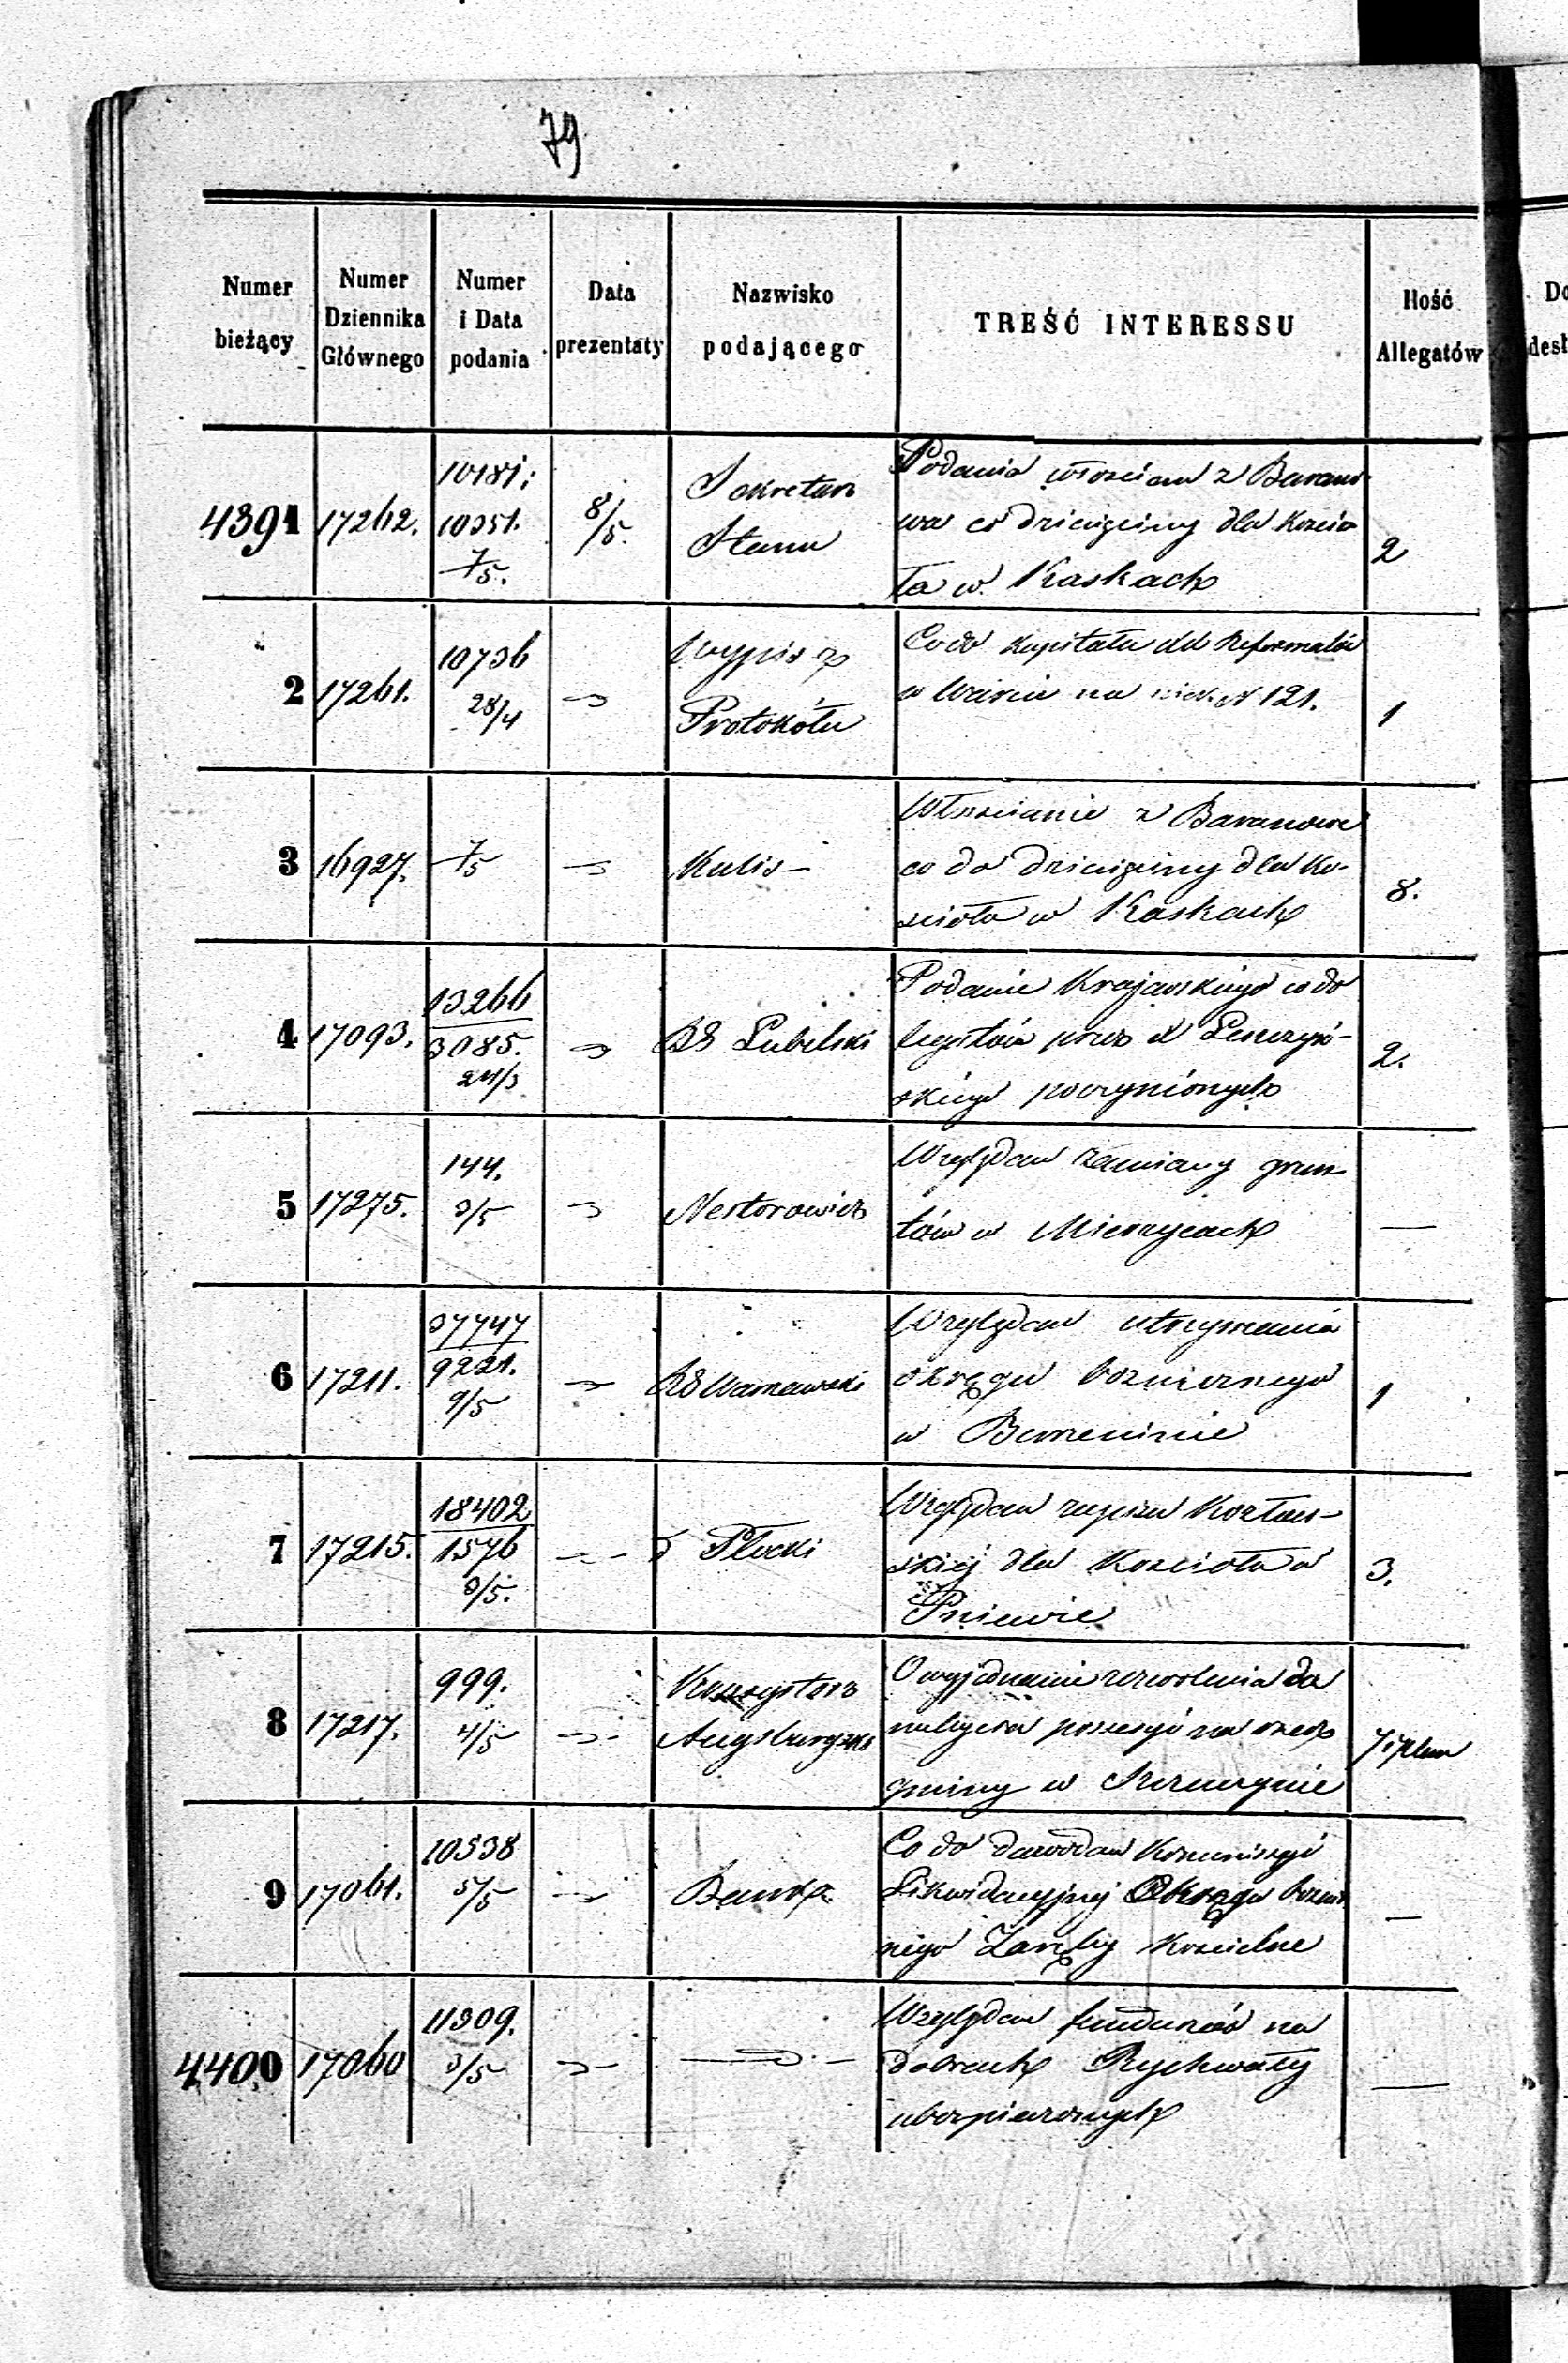 79
Numer bieżący
Numer Dziennika Głównego
Numer i Data podania
Data prezentaty
Nazwisko podającego
TREŚĆ INTERESSU
Ilość Allegatów
4391
17262.
10181;
10351.
7/5.
8/5.
Sekretarz
Stanu
Podania włościan z Barano
wa co dziesięciny dla Kościo
ła w Kaskach
2
2
17261.
10736
28/4
Wypis z
Protokółu
Co do kapitału dla Reformatów
w na 121.
1
3
16927.
7/5
Kulis
Włościanie z Baranowa
co do dziesięciny dla Ko-
ścioła w Kaskach
8.
4
17093.
13266
3085.
24/3
RG Lubelski
Podanie Krajewskiego co do
legatów przez X Leszczyń-
skiego poczynionych
2.
5
17275.
144.
3/5
Nestorowicz
Względem zamiany grun
tów w Mierzycach
—
6
17211.
37747
9221.
9/5
RG Warszawski
Względem utrzymania
okręgu bożniczego
w
1
7
17215.
18402
1576
3/5.
Płocki
Względem
dla Kościoła w
Pniewie
3.
8
17217.
999.
4/5
Konsystorz
Augsburgski
O wyjednanie zezwolenia do
nabycia posesyi na rzecz
gminy w
7 i plan
9
17061.
10538
5/5
Bank
Co do dowodów Kommissyi
Likwidacyjnej Okręgu bożni
Zaręby Kościelne
—
4400
17060
11309.
3/5
Względem funduszów na
dobrach Rychwały
ubezpieczonych
—